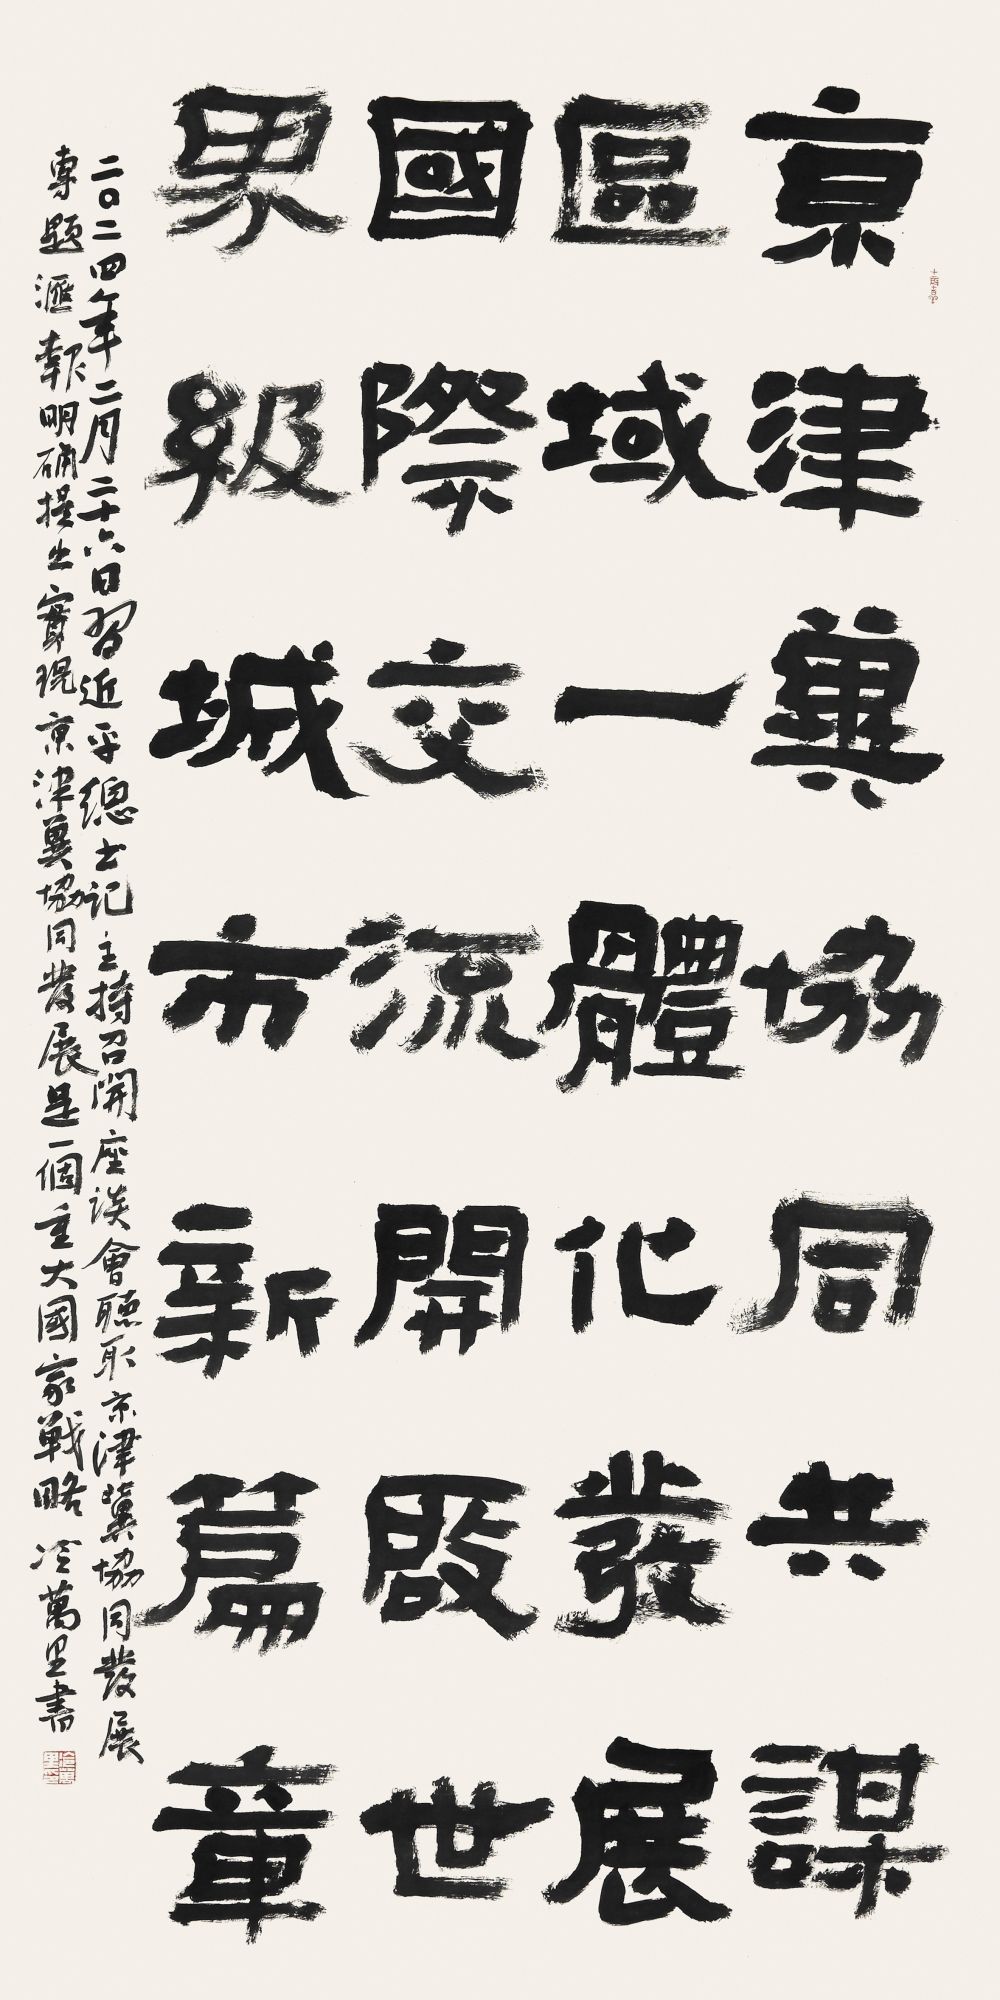 京津冀協同共謀
區域一體化發展
國際交流開啟世
界級城市新篇章
二〇二四年二月二十六日習近平總书记主持召開座談會聽取京津冀協同發展
專題滙報明確提出實現京津冀協同發展是一個重大國家戰略冷萬里書